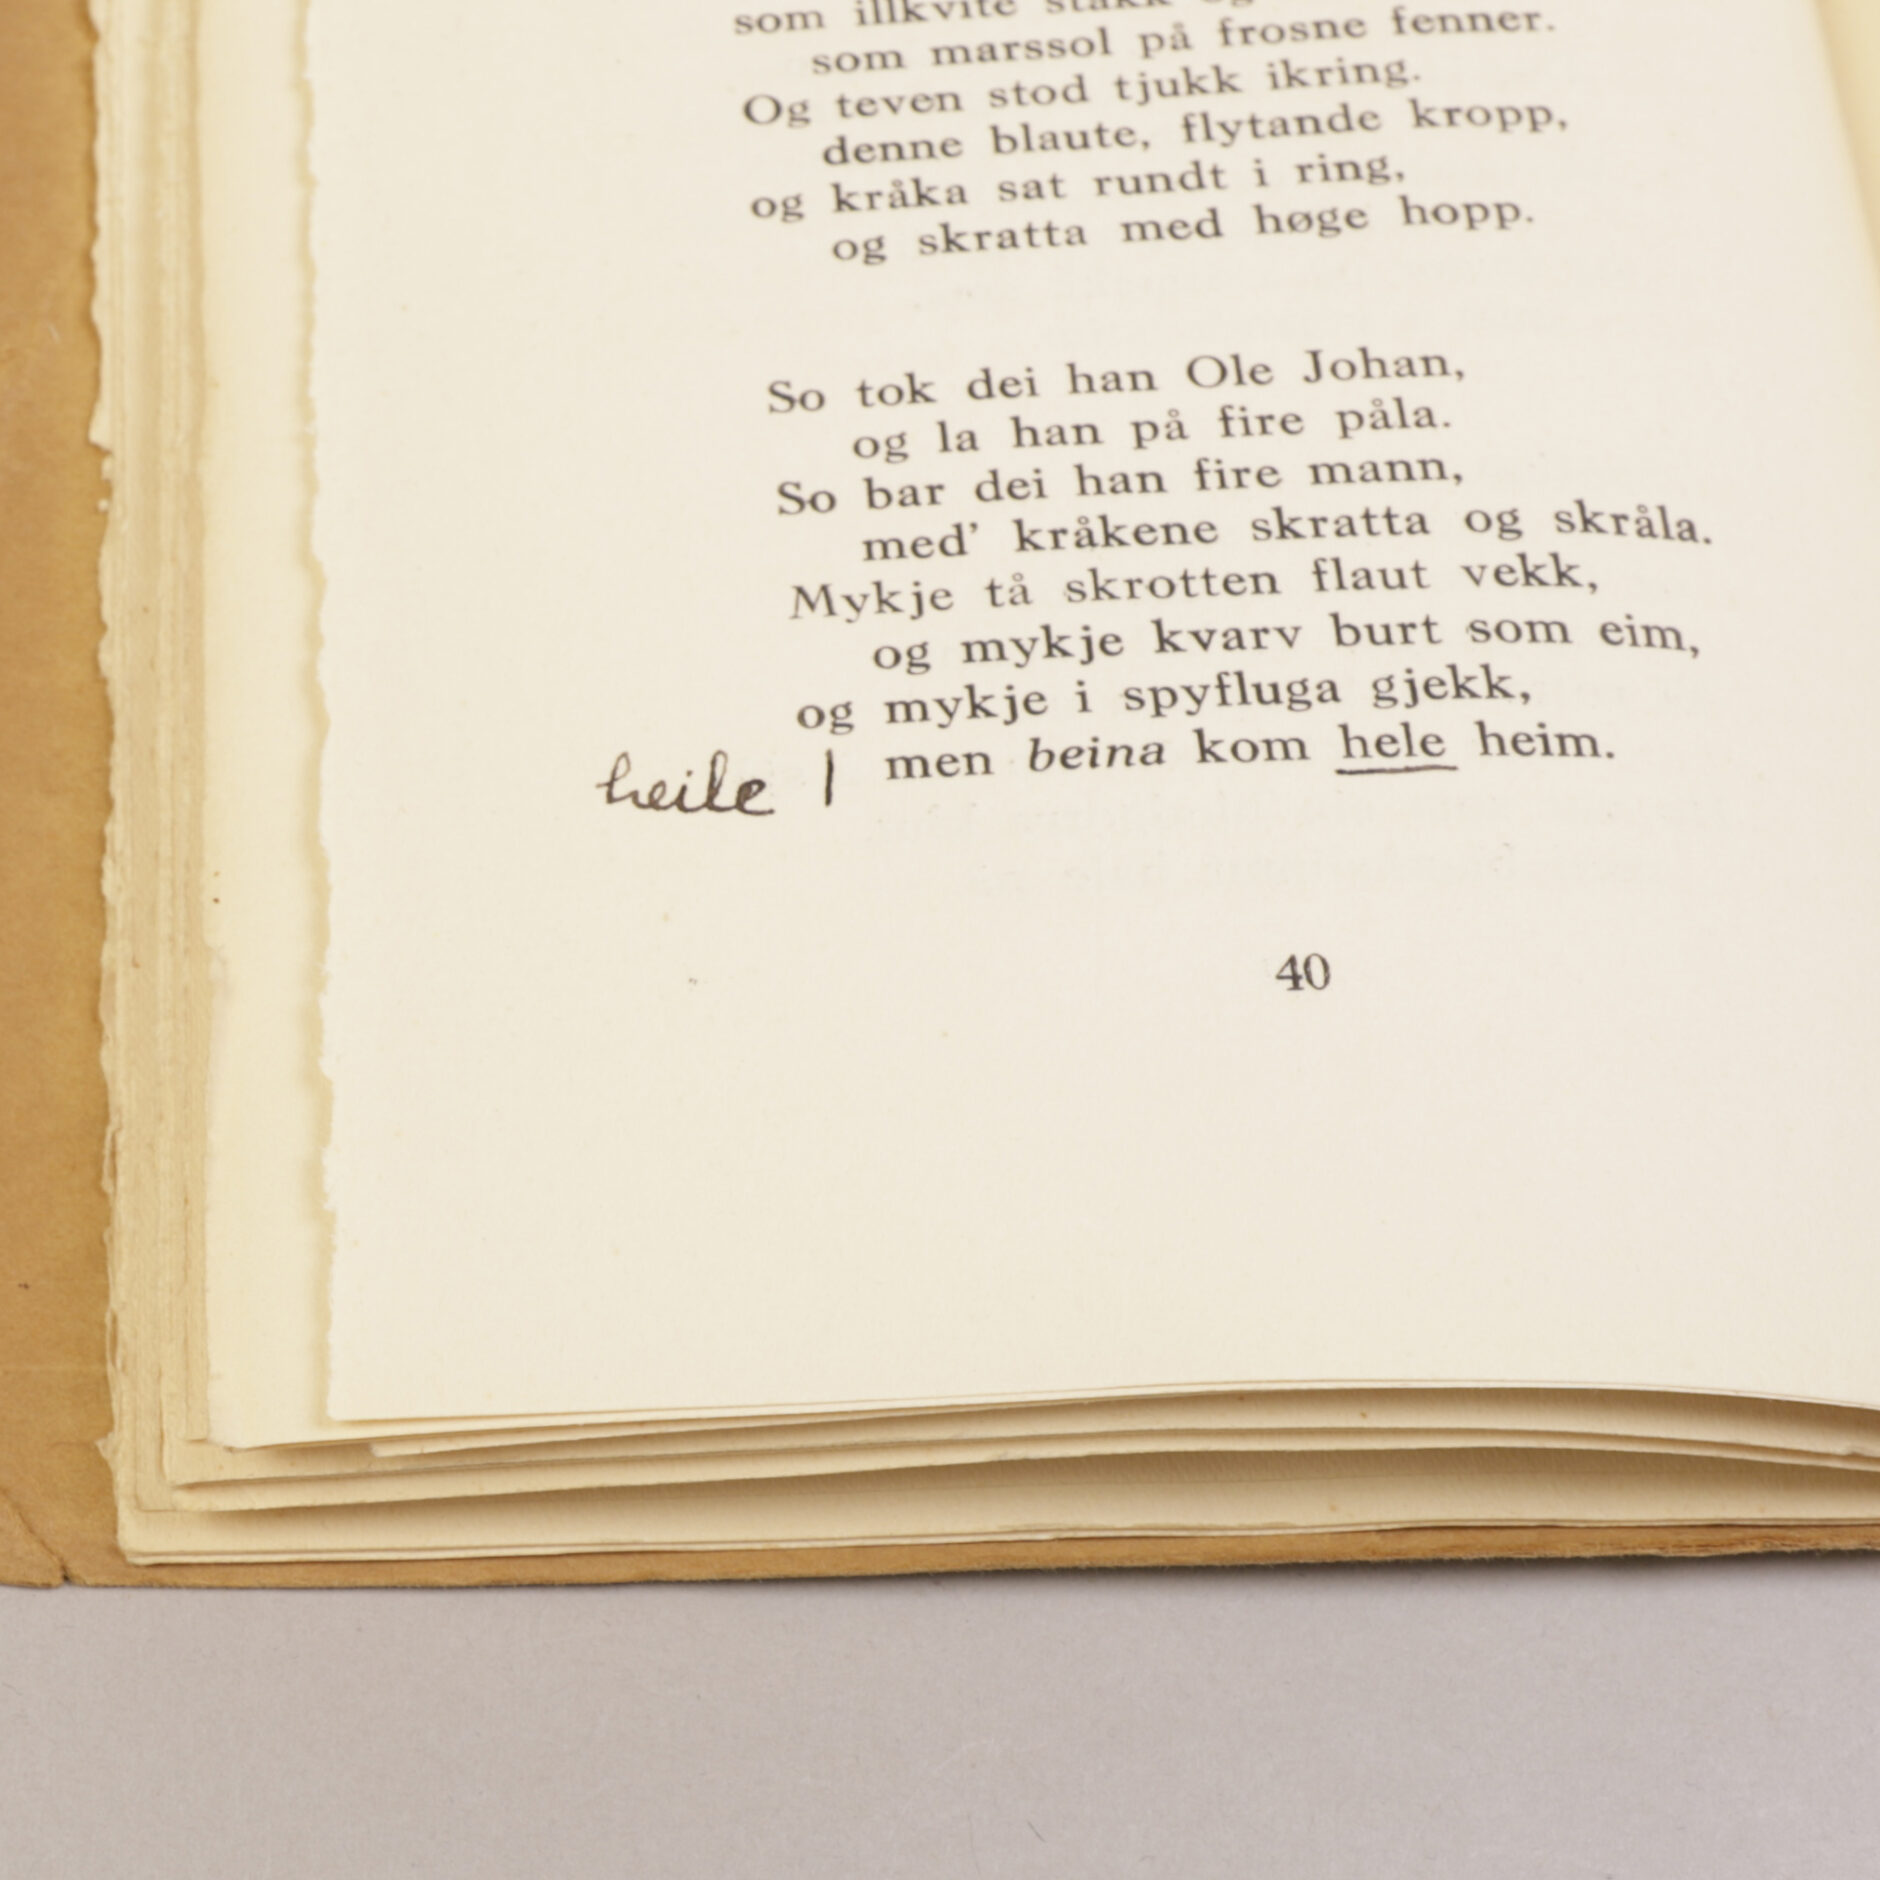 som illkvite stakk
som marssol på frosne fenner.
Og teven stod tjukk ikring.
denne blaute, flytande kropp,
og kråka sat rundt i ring,
og skratta med høge hopp.
So tok dei han Ole Johan,
og la han på fire påla.
So bar dei han fire mann,
med' kråkene skratta og skråla.
Mykje tå skrotten flaut vekk,
og mykje kvarv burt som eim,
og mykje i spyfluga gjekk,
heile | men beina kom hele heim.
40